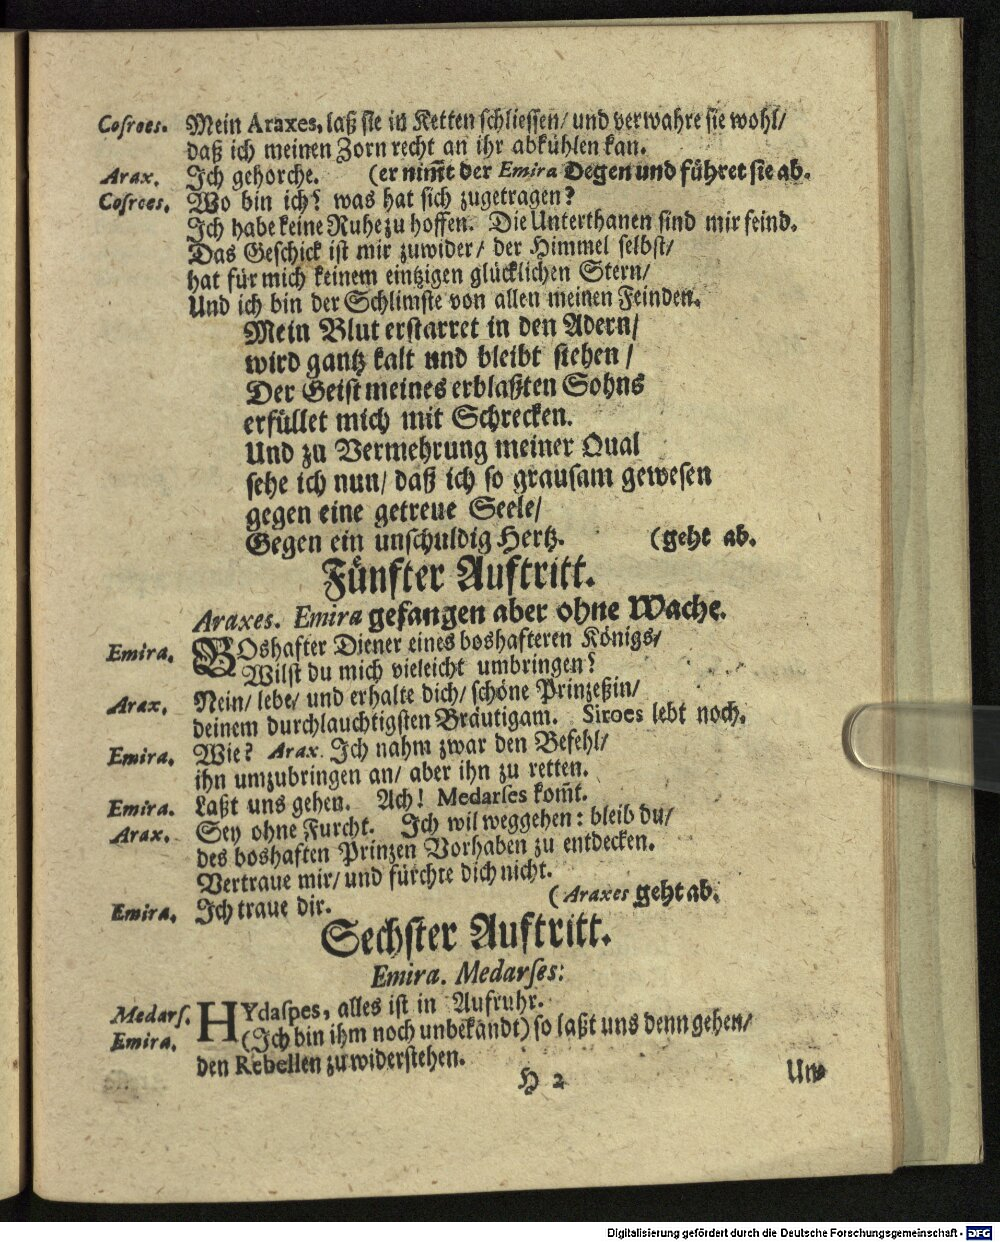 Cosroes. Mein Araxes, laß sie in Ketten schliessen/ und verwahre sie wohl/
daß ich meinen Zorn recht an ihr abkühlen kan.
Arax. Ich gehorche. (er nim̄t der Emira Degen und führet sie ab.
Cosroes. Wo bin ich? was hat sich zugetragen?
Ich habe keine Ruhe zu hoffen. Die Unterthanen sind mir feind.
Das Geschick ist mir zuwider/ der Himmel selbst/
hat für mich keinem eintzigen glücklichen Stern/
Und ich bin der Schlimste von allen meinen Feinden.
Mein Blut erstarret in den Adern/
wird gantz kalt und bleibt stehen/
Der Geist meines erblaßten Sohns
erfüllet mich mit Schrecken.
Und zu Vermehrung meiner Qual
sehe ich nun/ daß ich so grausam gewesen
gegen eine getreue Seele/
Gegen ein unschuldig Hertz. (geht ab.
Fünfter Auftritt.
Araxes. Emira gefangen aber ohne Wache.
Emira. BOshafter Diener eines boshafteren Königs/
Wilst du mich vieleicht umbringen?
Arax. Nein/ lebe/ und erhalte dich/ schöne Prinzeßin/
deinem durchlauchtigsten Bräutigam. Siroes lebt noch.
Emira. Wie? Arax. Ich nahm zwar den Befehl/
ihn umzubringen an/ aber ihn zu retten.
Emira. Laßt uns gehen. Ach! Medarses kom̄t.
Arax. Sey ohne Furcht. Ich wil weggehen: bleib du/
des boshaften Prinzen Vorhaben zu entdecken.
Vertraue mir/ und fürchte dich nicht.
Emira. Ich traue dir. (Araxes geht ab.
Sechster Auftritt.
Emira. Medarses:
Medars. HYdaspes, alles ist in Aufruhr.
Emira. (Ich bin ihm noch unbekandt) so laßt uns denn gehen/
den Rebellen zu widerstehen.
H 2 Un-
Digitalisierung gefördert durch die Deutsche Forschungsgemeinschaft - DFG